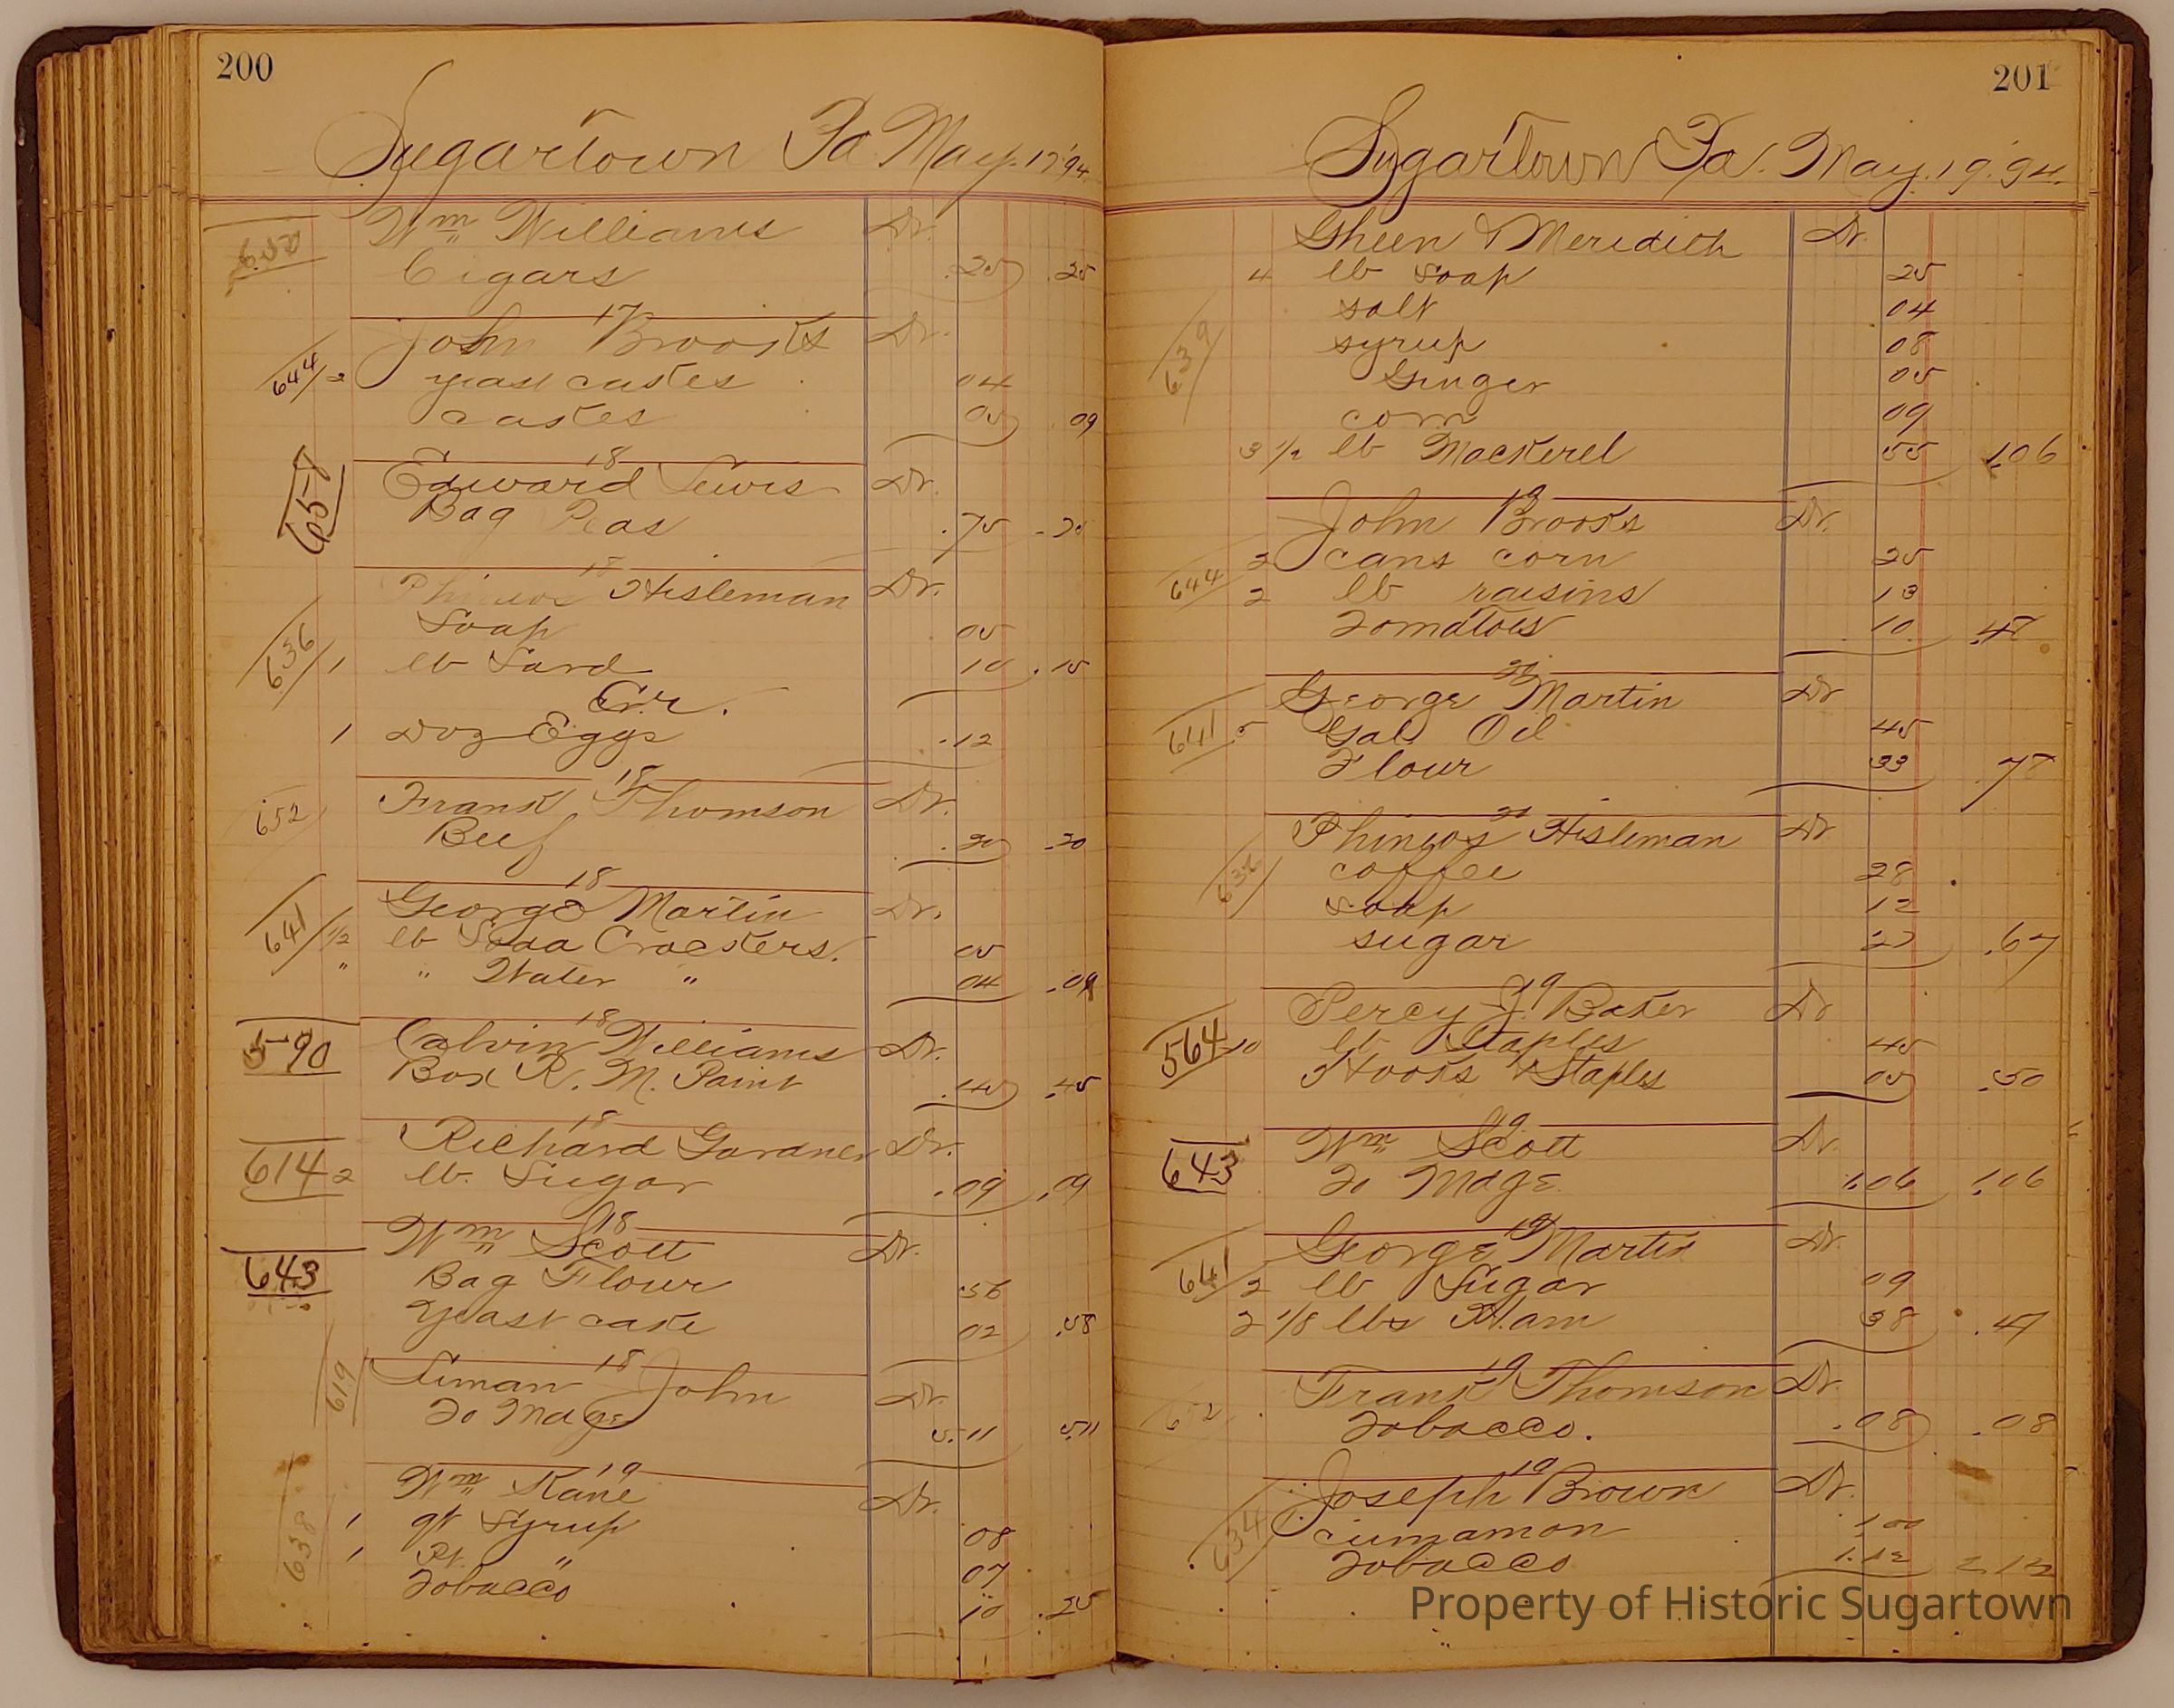 200
Sugartown Pa May. 17 '94
Wm Williams Dr.
Cigars .25 .25
17
John Brooks Dr.
644 2 yeast cakes 04
cakes 05 .09
18
657 Edward Lewis Dr.
Bag Peas .75
18
Phineos Hisleman Dr.
636 Soap 05
1 lb Lard 10 .15
Cr.
1 Doz Eggs .12
18
652 Frank Thomson Dr.
Beef .20 .20
18
George Martin Dr.
641 1/2 lb Soda Crackers. 05
" " Water " 04 .09
18
590 Calvin Williams Dr.
Box R. M. Paint .45 .45
18
Richard Gardner Dr.
614 2 lb. Sugar .09 .09
18
Wm Scott Dr.
643 Bag Flour .56
Yeast cake 02 .58
18
619 Liman John Dr.
To Mdge 5.11 5.11
19
Wm Kane Dr.
638 1 qt Syrup 08
1 Pt. " 07
Tobacco 10 .25
201
Sugartown Pa. May. 19. 94.
Gheen & Meredith Dr.
4 lb soap 25
salt 04
639 syrup 08
Ginger 05
corn 09
3 1/2 lb Mackerel 55 1.06
19
John Brooks Dr.
2 cans corn 25
644 2 lb raisins 13
Tomatoes 10 .47
George Martin Dr
641 5 Gal Oil 45
Flour 33
Phineos Hisleman Dr
636 coffee 28
soap 12
sugar 27 .67
19
Percy J. Baker Dr
564 10 lb Staples 45
Hooks & Staples 05 .50
19
Wm Scott Dr.
643 To Mdge 1.06 1.06
19
George Martin Dr.
641 2 lb Sugar 09
2 1/8 lbs Ham 38 .47
19
652 Frank Thomson Dr.
Tobacco. .08 .08
19
Joseph Brown Dr.
634 cinnamon 1.00
Tobacco 1.12 2.12
Property of Historic Sugartown